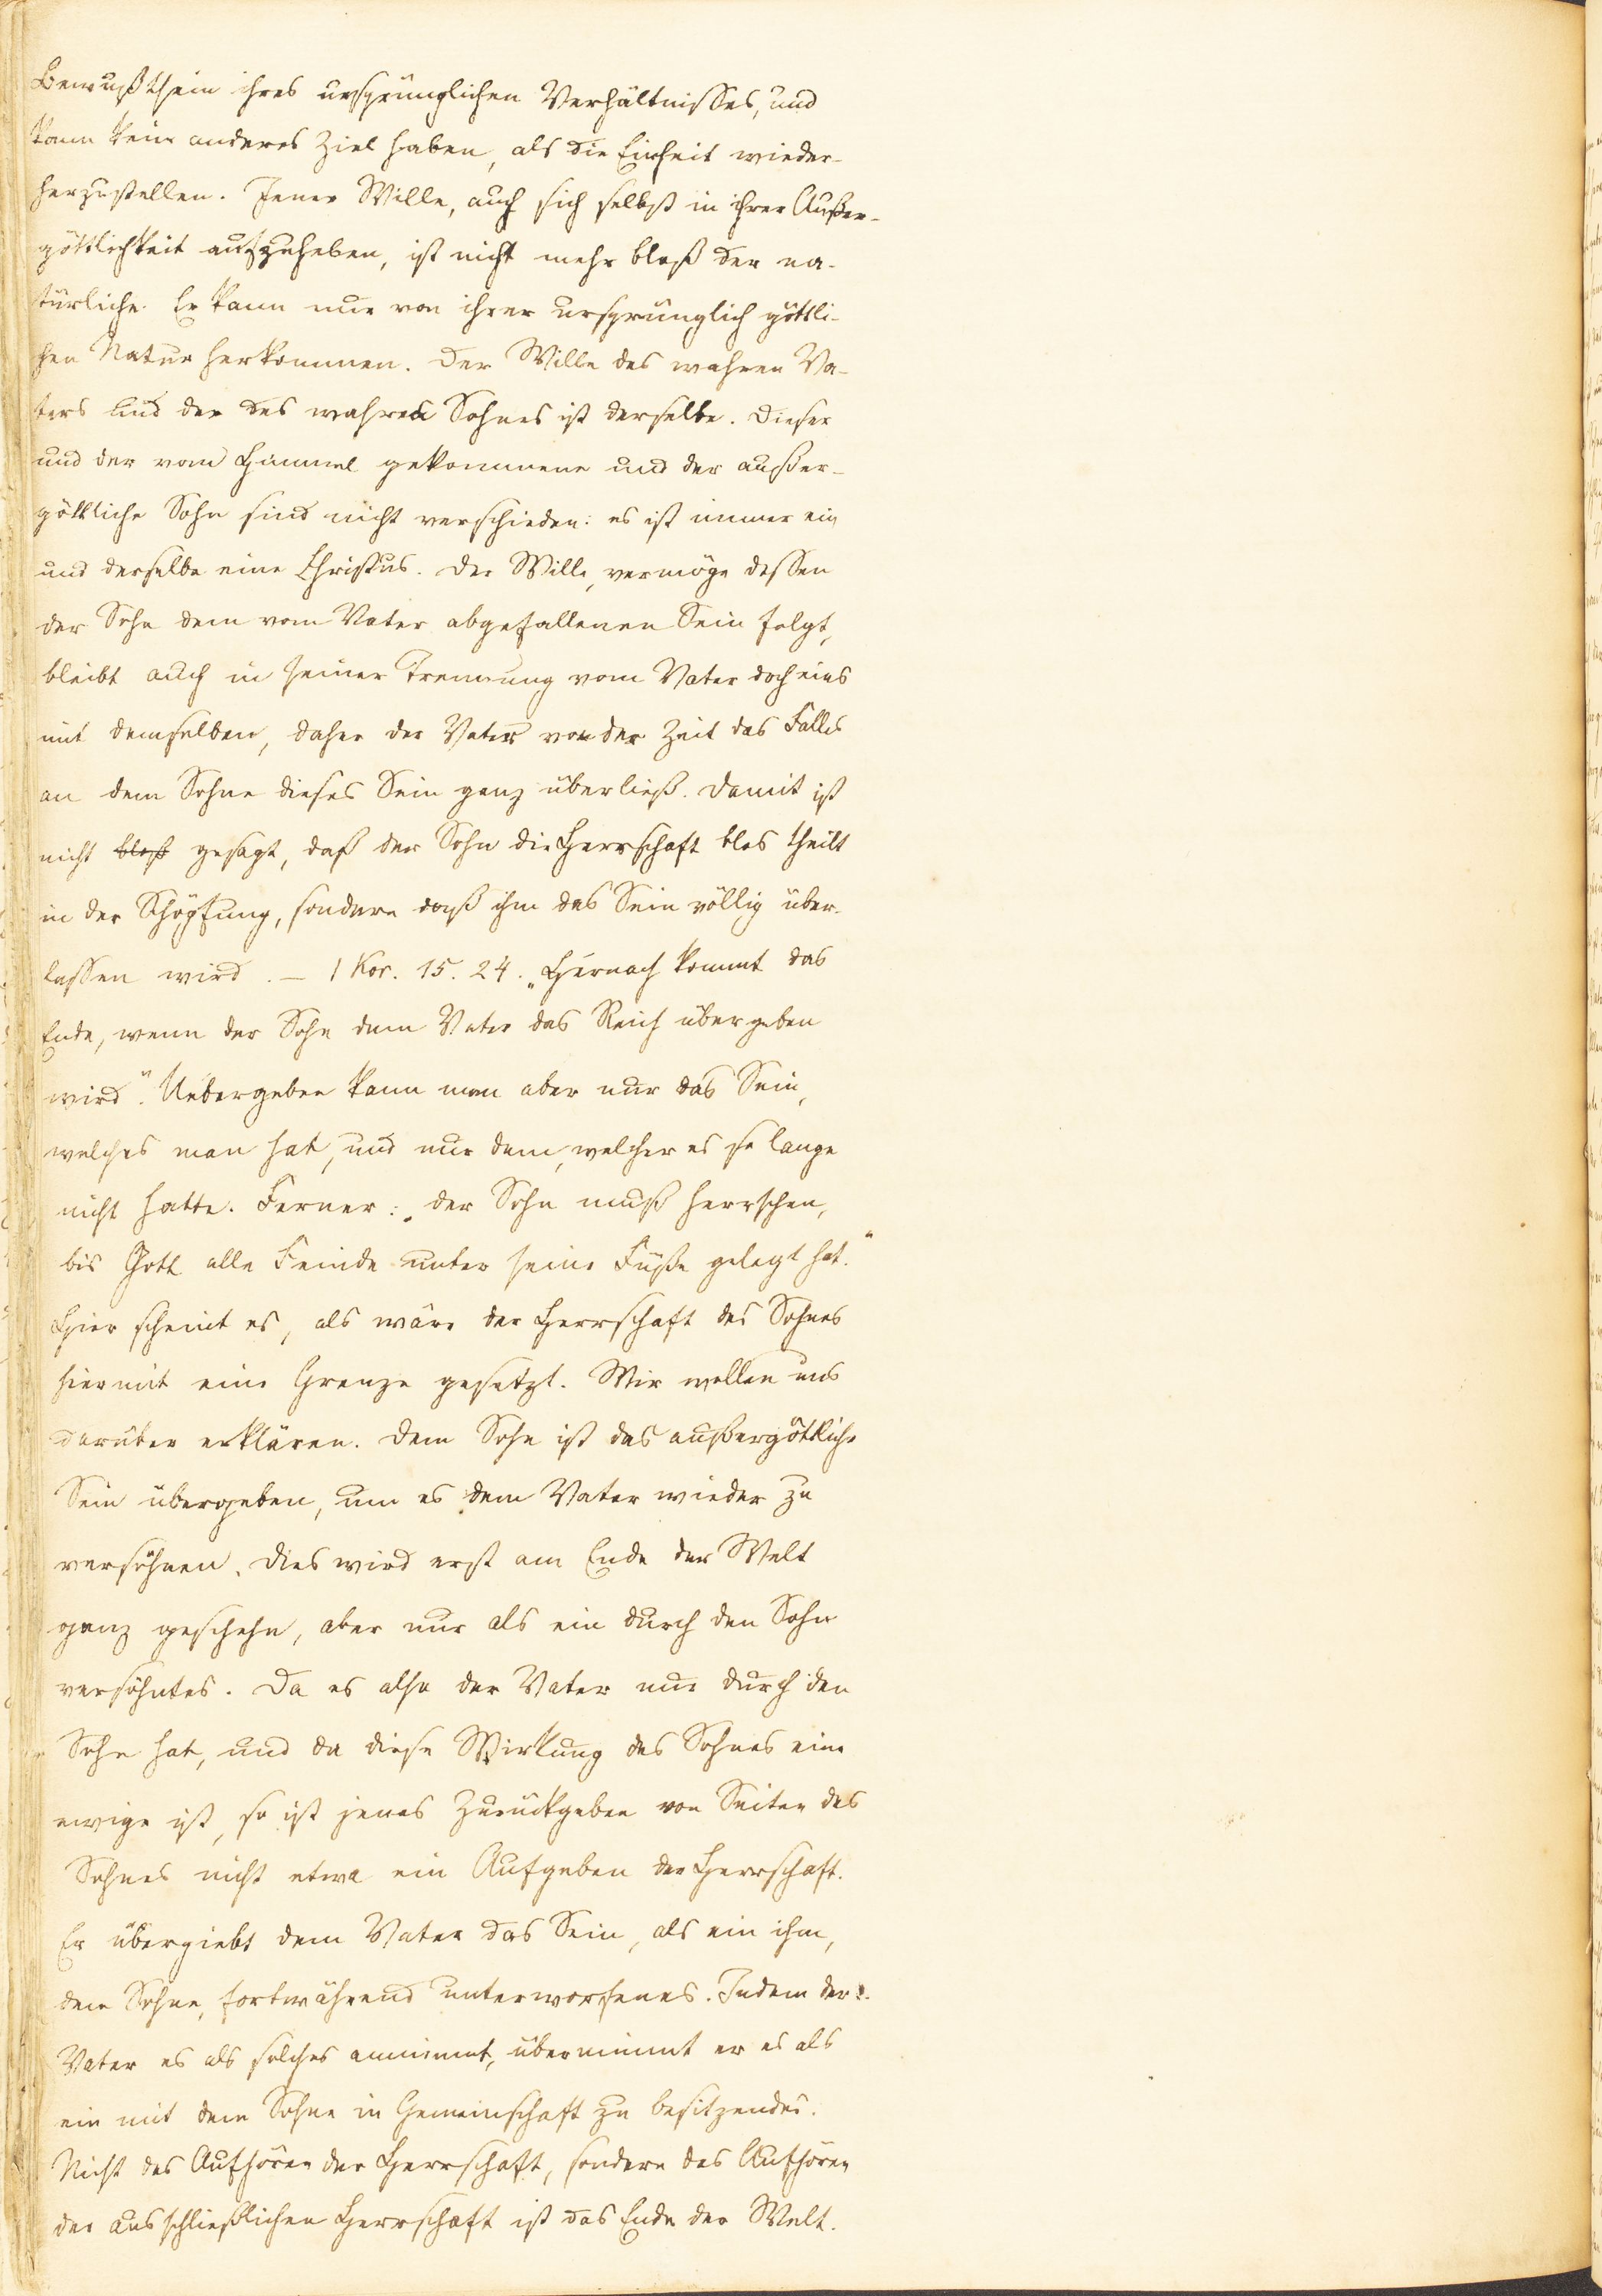 Bewußtsein ihres ursprünglichen Verhältnisses, und
kann kein anderes Ziel haben, als die Einheit wieder-
herzustellen. Jener Wille, auch sich selbst in ihrer Außer-
göttlichkeit aufzuheben, ist nicht mehr bloß der na-
türliche. Er kann nur von ihrer ursprünglich göttli-
chen Natur herkommen. Der Wille des wahren Va-
ters und der des wahren Sohnes ist derselbe. Dieser
und der vom Himmel gekommene und der außer-
göttliche Sohn sind nicht verschieden: es ist immer ein
und derselbe eine Christus. Der Wille, vermöge dessen
der Sohn dem vom Vater abgefallenen Sein folgt,
bleibt auch in seiner Trennung vom Vater doch eins
mit demselben, daher der Vater von der Zeit des Falles
an dem Sohne dieses Sein ganz überließ. Damit ist
nicht bloß gesagt, daß der Sohn die Herrschaft blos theilt
in der Schöpfung, sondern daß ihm das Sein völlig über-
lassen wird. – 1 Kor. 15. 24. „Hernach kommt das
Ende, wenn der Sohn dem Vater das Reich übergeben
wird“. Uebergeben kann man aber nur das Sein,
welches man hat, und nur dem, welcher es so lange
nicht hatte. Ferner: „der Sohn muß herrschen,
bis Gott alle Feinde unter seine Füße gelegt hat.“
Hier scheint es, als wäre der Herrschaft des Sohnes
hiermit eine Grenze gesetzt. Wir wollen uns
darüber erklären. Dem Sohn ist das außergöttliche
Sein übergeben, um es dem Vater wieder zu
versöhnen. Dies wird erst am Ende der Welt
ganz geschehn, aber nur als ein durch den Sohn
versöhntes. Da es also der Vater nur durch den
Sohn hat, und da diese Wirkung des Sohnes eine
ewige ist, so ist jenes Zurückgeben von Seiten des
Sohnes nicht etwa ein Aufgeben der Herrschaft.
Er übergiebt dem Vater das Sein, als ein ihm,
dem Sohne, fortwährend unterworfenes. Indem der
Vater es als solches annimmt, übernimmt er es als
ein mit dem Sohne in Gemeinschaft zu besitzendes.
Nicht das Aufhören der Herrschaft, sondern das Aufhören
der ausschließlichen Herrschaft ist das Ende der Welt.